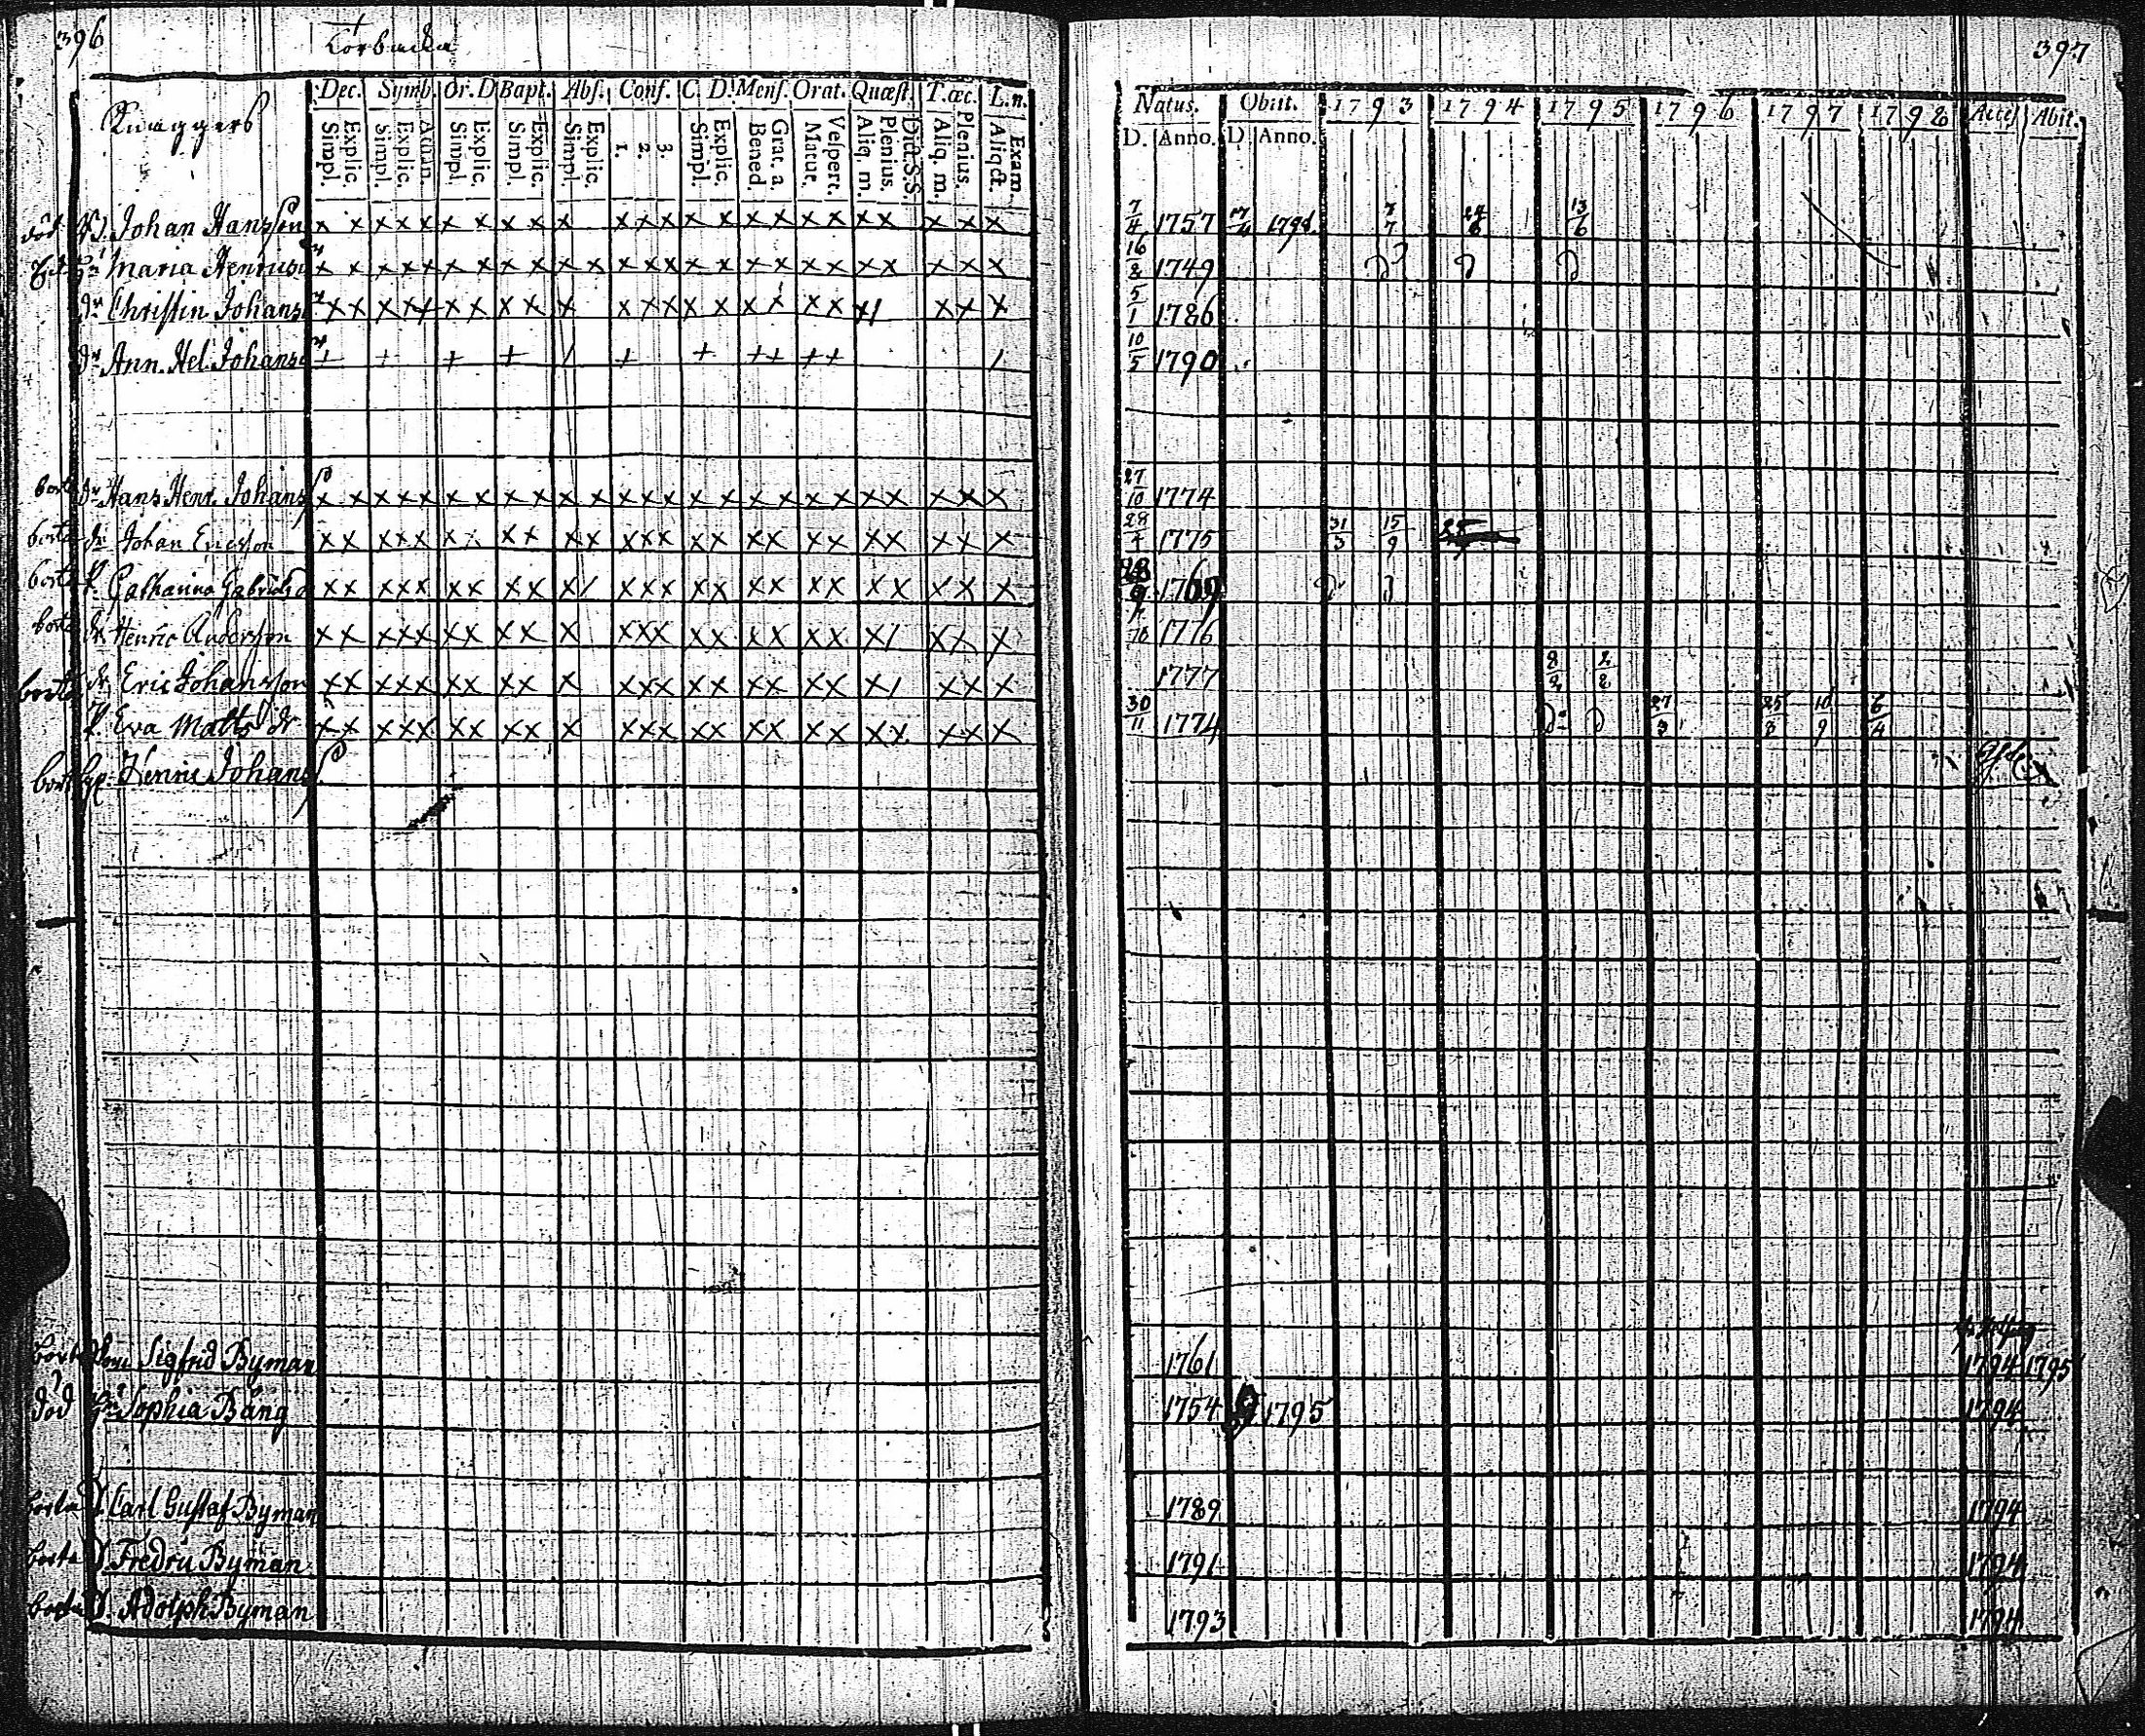 396
Torbacka
Knaggers
Dec. Symb. Or. D. Bapt. Abs. Conf. C. D. Mens. Orat. Quæst. T.œc. L.n.
Simpl. Explic. Simpl. Explic. Athan. Simpl. Explic. Simpl. Explic. Simpl. Explic. 1. 2. 3. Simpl. Explic. Bened. Grat. a. Matut. Vespert. Aliq. m. Plenius. Dict.S.S. Aliq. m. Plenius. Aliqct. Exam
död Johan Hansson x x x x x x x x x x x x x x x x x x x x x x x x
Maria Henrics x x x x x x x x x x x x x x x x x x x x x x x x x
dr Christin Johans x x x x x x x x x x x x x x x x x x x x / x x x
dr Ann. Hel. Johans + + + + / + + + + + + /
borta Hans Henr. Johans x x x x x x x x x x x x x x x x x x x x x x x x x
borta dr Johan Ericsson x x x x x x x x x x x x x x x x x x x x x x x x x
borta P. Catharina Gabriels x x x x x x x x x x / x x x x x x x x x x x x x x
borta dr Henric Andersson x x x x x x x x x x x x x x x x x x x x / x x x
borta dr Eric Johansson x x x x x x x x x x x x x x x x x x x x / x x x
P. Eva Matts dr x x x x x x x x x x x x x x x x x x x x x x x x
bort Henric Johans
borta Sigfrid Byman
död Sophia Bång
borta Carl Gustaf Byman
borta Fredric Byman
borta Adolph Byman
397
Natus. Obiit. 1793 1794 1795 1796 1797 1798 Acces. Abit.
D. Anno. D. Anno.
7/4 1757 1798 7/7 24/6 13/6
16/8 1749
5/1 1786
10/5 1790
27/10 1774
28/4 1775 31/3 15/9
1769
1776
1777 8/2 2/8
30/11 1774 27/3 25/3 10/9 6/4
1761 1794 1795
1754 9 1795 1794
1789 1794
1791 1794
1793 1794